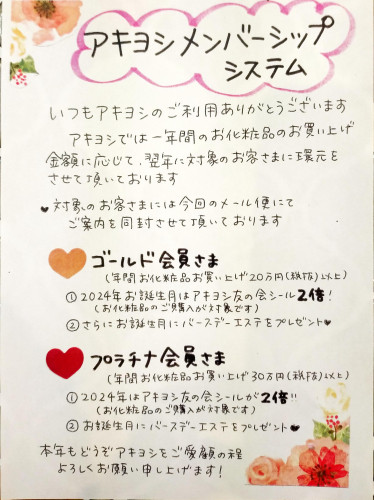 アキヨシメンバーシップ
システム
いつもアキヨシのご利用ありがとうございます
アキヨシでは一年間のお化粧品のお買い上げ
金額に応じて、翌年に対象のお客さまに還元を
させて頂いております
♥対象のお客さまには今回のメール便にて
ご案内を同封させて頂いております
ゴールド会員さま
(年間お化粧品お買い上げ20万円(税抜)以上)
①2024年お誕生月はアキヨシ友の会シール2倍!
(お化粧品のご購入が対象です)
②さらにお誕生月にバースデーエステをプレゼント♥
プラチナ会員さま
(年間お化粧品お買い上げ30万円(税抜)以上)
①2024年はアキヨシ友の会シールが2倍!!
(お化粧品のご購入が対象です)
②お誕生月にバースデーエステをプレゼント♥
本年もどうぞアキヨシをご愛顧の程
よろしくお願い申し上げます!